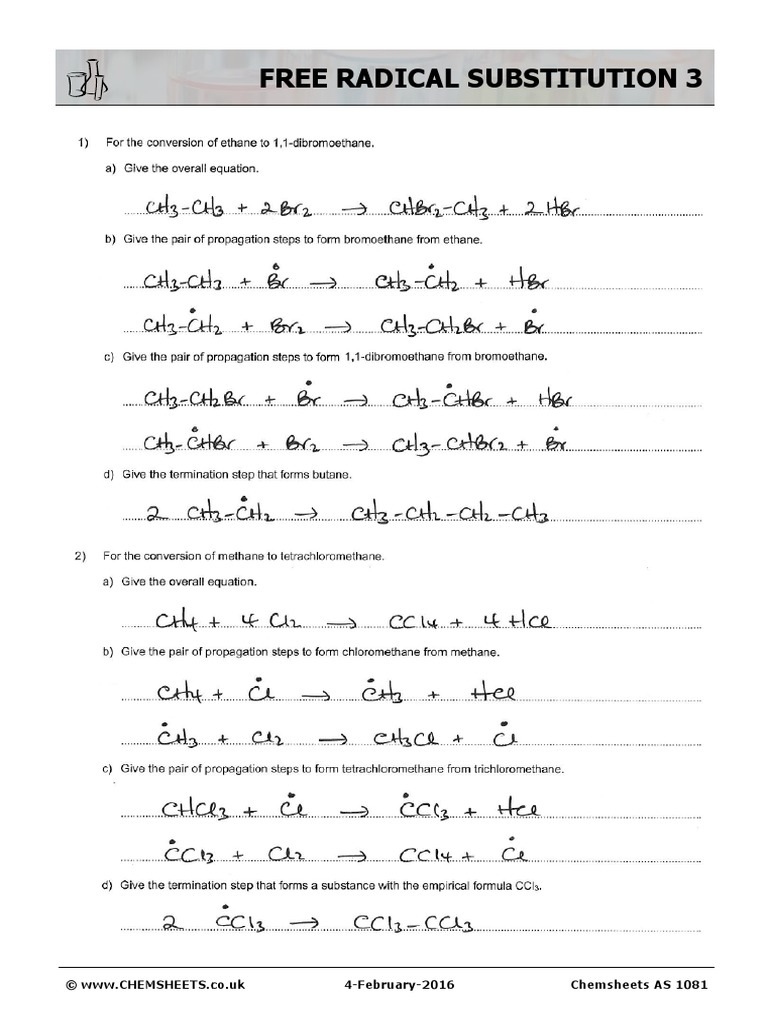 FREE RADICAL SUBSTITUTION 3
1) For the conversion of ethane to 1,1-dibromoethane.
a) Give the overall equation.
CH3-CH3 + 2Br2 → CHBr2-CH3 + 2HBr
b) Give the pair of propagation steps to form bromoethane from ethane.
CH3-CH3 + Ḃr → CH3-ĊH2 + HBr
CH3-ĊH2 + Br2 → CH3-CH2Br + Ḃr
c) Give the pair of propagation steps to form 1,1-dibromoethane from bromoethane.
CH3-CH2Br + Ḃr → CH3-ĊHBr + HBr
CH3-ĊHBr + Br2 → CH3-CHBr2 + Ḃr
d) Give the termination step that forms butane.
2 CH3-ĊH2 → CH3-CH2-CH2-CH3
2) For the conversion of methane to tetrachloromethane.
a) Give the overall equation.
CH4 + 4Cl2 → CCl4 + 4HCl
b) Give the pair of propagation steps to form chloromethane from methane.
CH4 + Ċl → ĊH3 + HCl
ĊH3 + Cl2 → CH3Cl + Ċl
c) Give the pair of propagation steps to form tetrachloromethane from trichloromethane.
CHCl3 + Ċl → ĊCl3 + HCl
ĊCl3 + Cl2 → CCl4 + Ċl
d) Give the termination step that forms a substance with the empirical formula CCl3.
2 ĊCl3 → CCl3-CCl3
© www.CHEMSHEETS.co.uk 4-February-2016 Chemsheets AS 1081